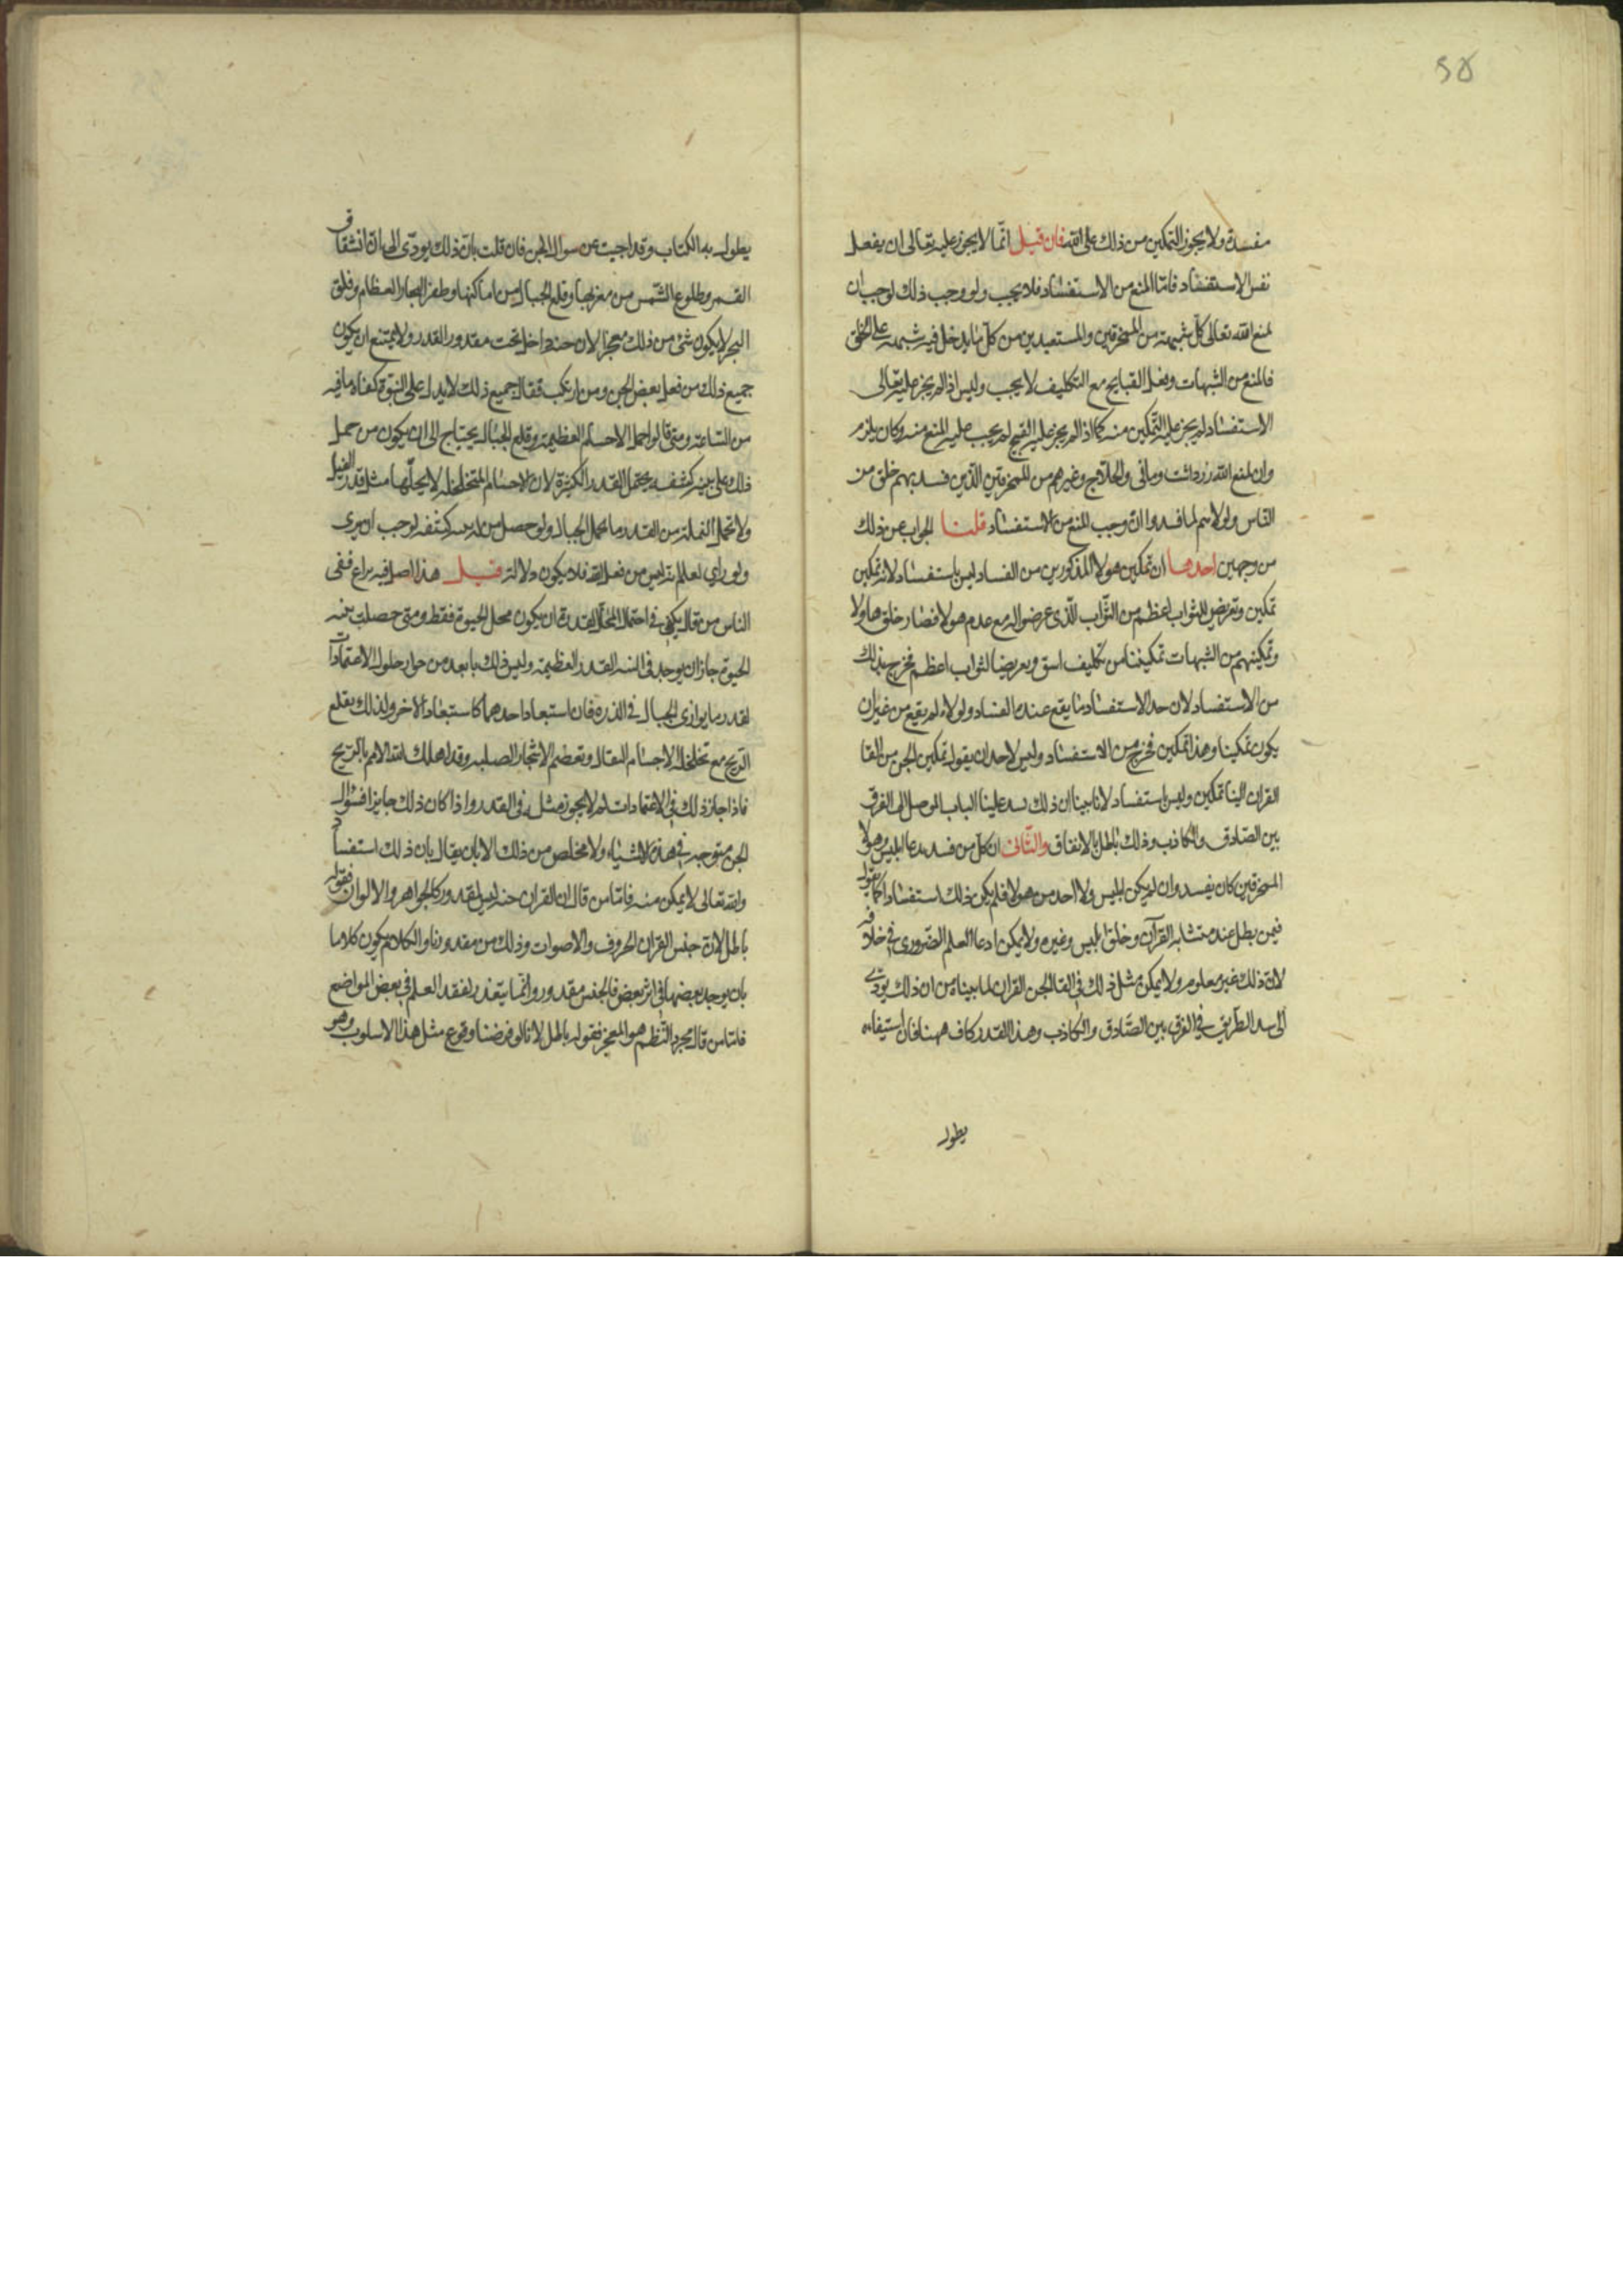 ٥٨
مفسدة ولا يجوز التمكين من ذلك على الله فان قيل انما لا يجوز عليه تعالى ان يفعل
نفس الاستفساد فامّا المنع من الاستفساد فلا يجب ولو وجب ذلك لوجب ان
يمنع الله تعالى كل شبهة من الممخرقين والمستعبدين من كل ما يدخل فيه شبهة على الخلق
فالمنع من الشبهات وفعل القبايح مع التكليف لا يجب وليس اذا لم يجز عليه تعالى
الاستفساد لم يجز عليه التمكين منه كما اذا لم يجز عليه القبيح لم يجب عليه المنع منه وكان يلزم
وان يمنع الله زردشت وماني والحلاج وغيرهم من الممخرقين الذين فسد بهم خلق من
الناس ولولاهم لما فسدوا ان وجب المنع من الاستفساد قلنا الجواب عن ذلك
من وجهين احدهما ان تمكين هولا المذكورين من الفساد ليس باستفساد لانه تمكين
تمكين وتعريض للثواب اعظم من الثواب الذى عرضوا له مع عدم هولا فصار خلق هاولا
وتمكينهم من الشبهات تمكيننا من تكليف اشق وتعريضا لثواب اعظم فخرج بذلك
من الاستفساد لان حد الاستفساد ما يقع عنده الفساد ولولاه لم يقع من غير ان
يكون تمكينا وهذا تمكين فخرج من الاستفساد وليس لاحد ان يقول تمكين الجن من القا
القران الينا تمكين وليس باستفساد لانا بينا ان ذلك يسد علينا الباب الموصل الى الفرق
بين الصادق والكاذب وذلك باطل بالاتفاق والثانى ان كل من فسد بدعا ابليس وهولا
الممخرقين كان يفسد وان لم يكن ابليس ولا احد من هولا فلم يكن ذلك استفسادا كما نقوله
فيمن يطل عنده متشابه القرآن وخلق ابليس وغيره ولا يمكن ادعا العلم الضرورى في خلافه
لان ذلك غير معلوم ولا يمكن مثل ذلك فى القا الجن القران لما بيناه من ان ذلك يؤدى
الى سد الطريق في الفرق بين الصادق والكاذب وهذا القدر كاف ههنا فان استيفاءه
يطول
يطول به الكتاب وقد اجيب عن سوال الجن فان قلت بان ذلك يودى الى ان انشقاق
القمر وطلوع الشمس من مغربها وقلع الجبال من اماكنها وطفر البحار العظام وفلق
البحر لا يكون شئ من ذلك معجزا لان جنسه داخل تحت مقدور القدر ولا يمتنع ان يكون
جميع ذلك من فعل بعض الجن ومن ارتكب فقال جميع ذلك لا يدل على النبوة كفاه ما فيه
من الشناعة ومتى قالوا حمل الاجسام العظيمة وقلع الجبال يحتاج الى ان يكون من حمل
ذلك على بنية كثيفة يحتمل القدر الكثيرة لان الاجسام المتخلخلة لا يحلها مثل قدر الفيل
ولا تحمل النملة من القدر ما يحمل الجبال ولو حصل من له بنية كثيفة لوجب ان يرى
ولو راي لعلم انه ليس من فعل الله فلا يكون دلالة قيل هذا اصل فيه نزاع ففى
الناس من قال يكفى في احتمال المحل القدرة ان يكون محل الحيوة فقط ومتى حصلت بنية
الحيوة جاز ان يوجد فى النملة القدر العظيمة وليس ذلك بابعد من جواز حلول الاعتمادات
لقدر ما يوازى الجبال في الذرة فان استبعاد احدهما كاستبعاد الاخر ولذلك يقلع
الريح مع تخلخلها الاجسام الثقال وتعصم الاشجار الصلبه وقد اهلك الله الامم بالريح
فاذا جاز ذلك فى الاعتمادات لم لا يجوز مثله فى القدر واذا كان ذلك جايزا فسؤال
الجن متوجه في هذه الاشياء ولا مخلص من ذلك الا بان يقال بان ذلك استفساد
والله تعالى لا يمكن منه فامّا من قال ان القران جنسه ليس بمقدور كالجواهر والالوان فقوله
باطل لان جنس القران الحروف والاصوات وذلك من مقدورنا والكلام يكون كلاما
بان يوجد بعضها فى اثر بعض فالجنس مقدور وانما يتعذر لفقد العلم فى بعض المواضع
فامّا من قال مجرد النظم هو المعجز فقوله باطل لانا لو فرضنا وقوع مثل هذا الاسلوب وهو